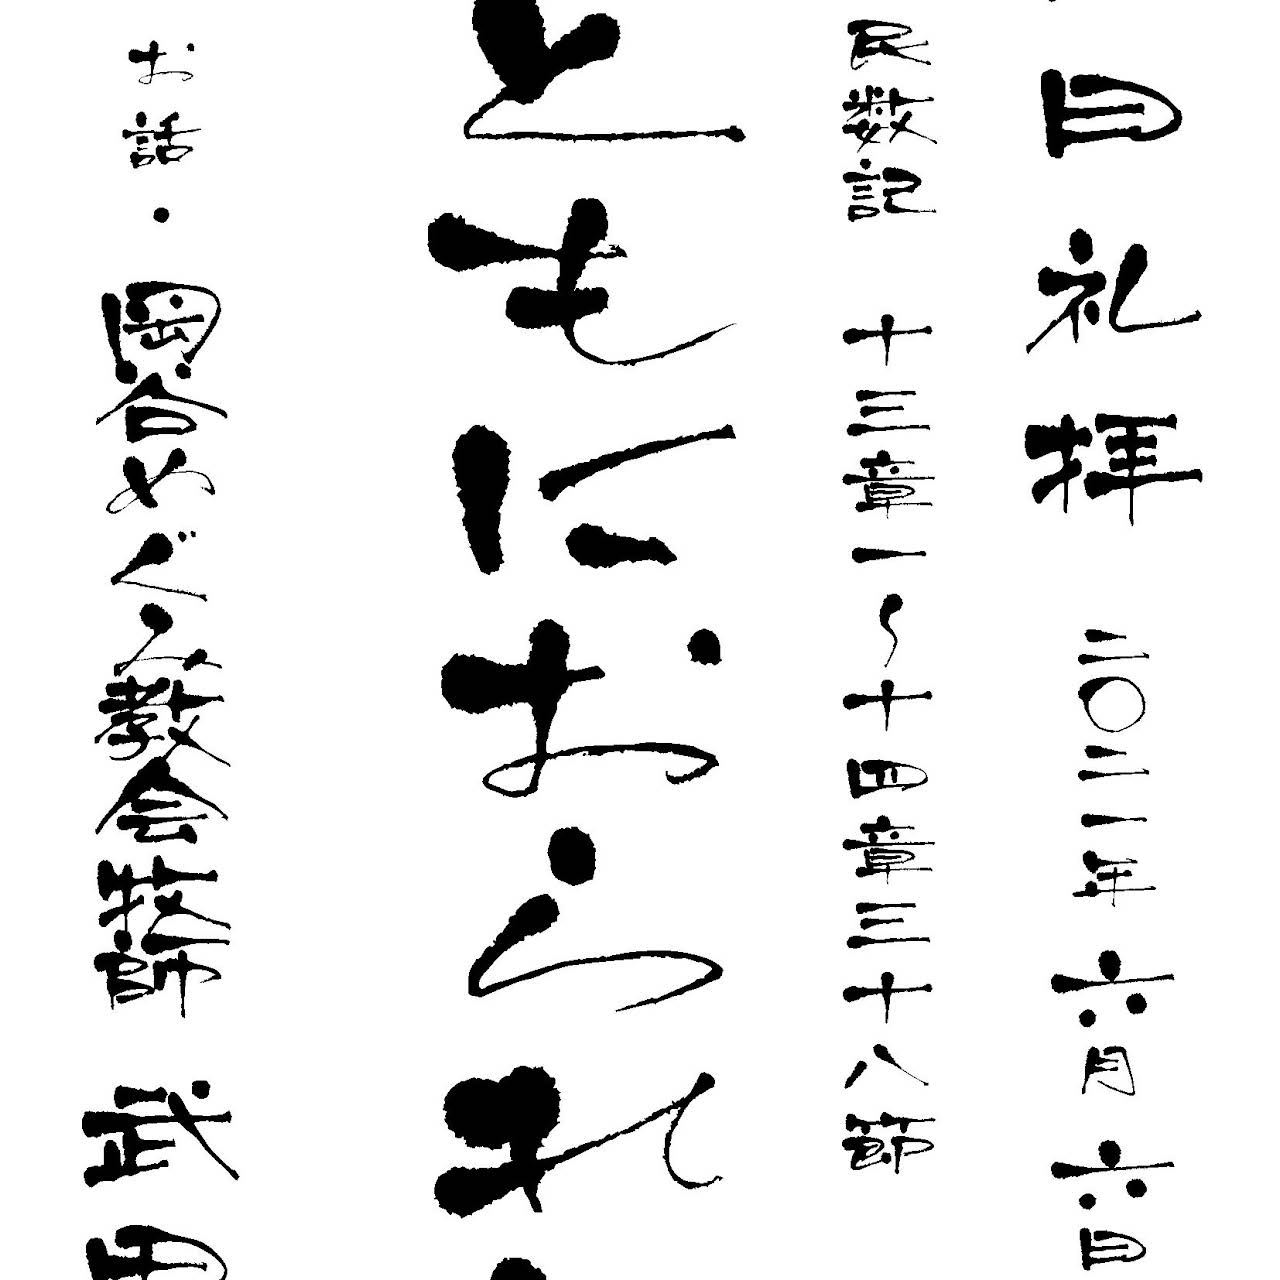 日礼拝 二〇二一年六月六日
民数記 十三章一〜十四章三十八節
ともにおられ
お話・岡谷めぐみ教会牧師 武田